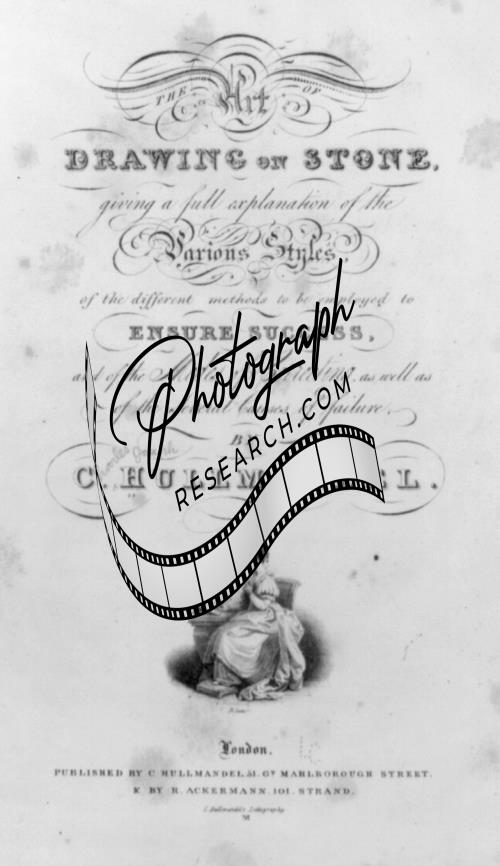 THE Art OF
DRAWING ON STONE,
giving a full explanation of the
Various Styles,
of the different methods to be employed to
ENSURE SUCCESS,
as well as
of the causes of failure.
BY
C. HULLMANDEL.
Photograph
RESEARCH.COM
London.
PUBLISHED BY C HULLMANDEL 51. GT MARLBOROUGH STREET.
& BY R. ACKERMANN. 101. STRAND.
C. Hullmandel's Lithography